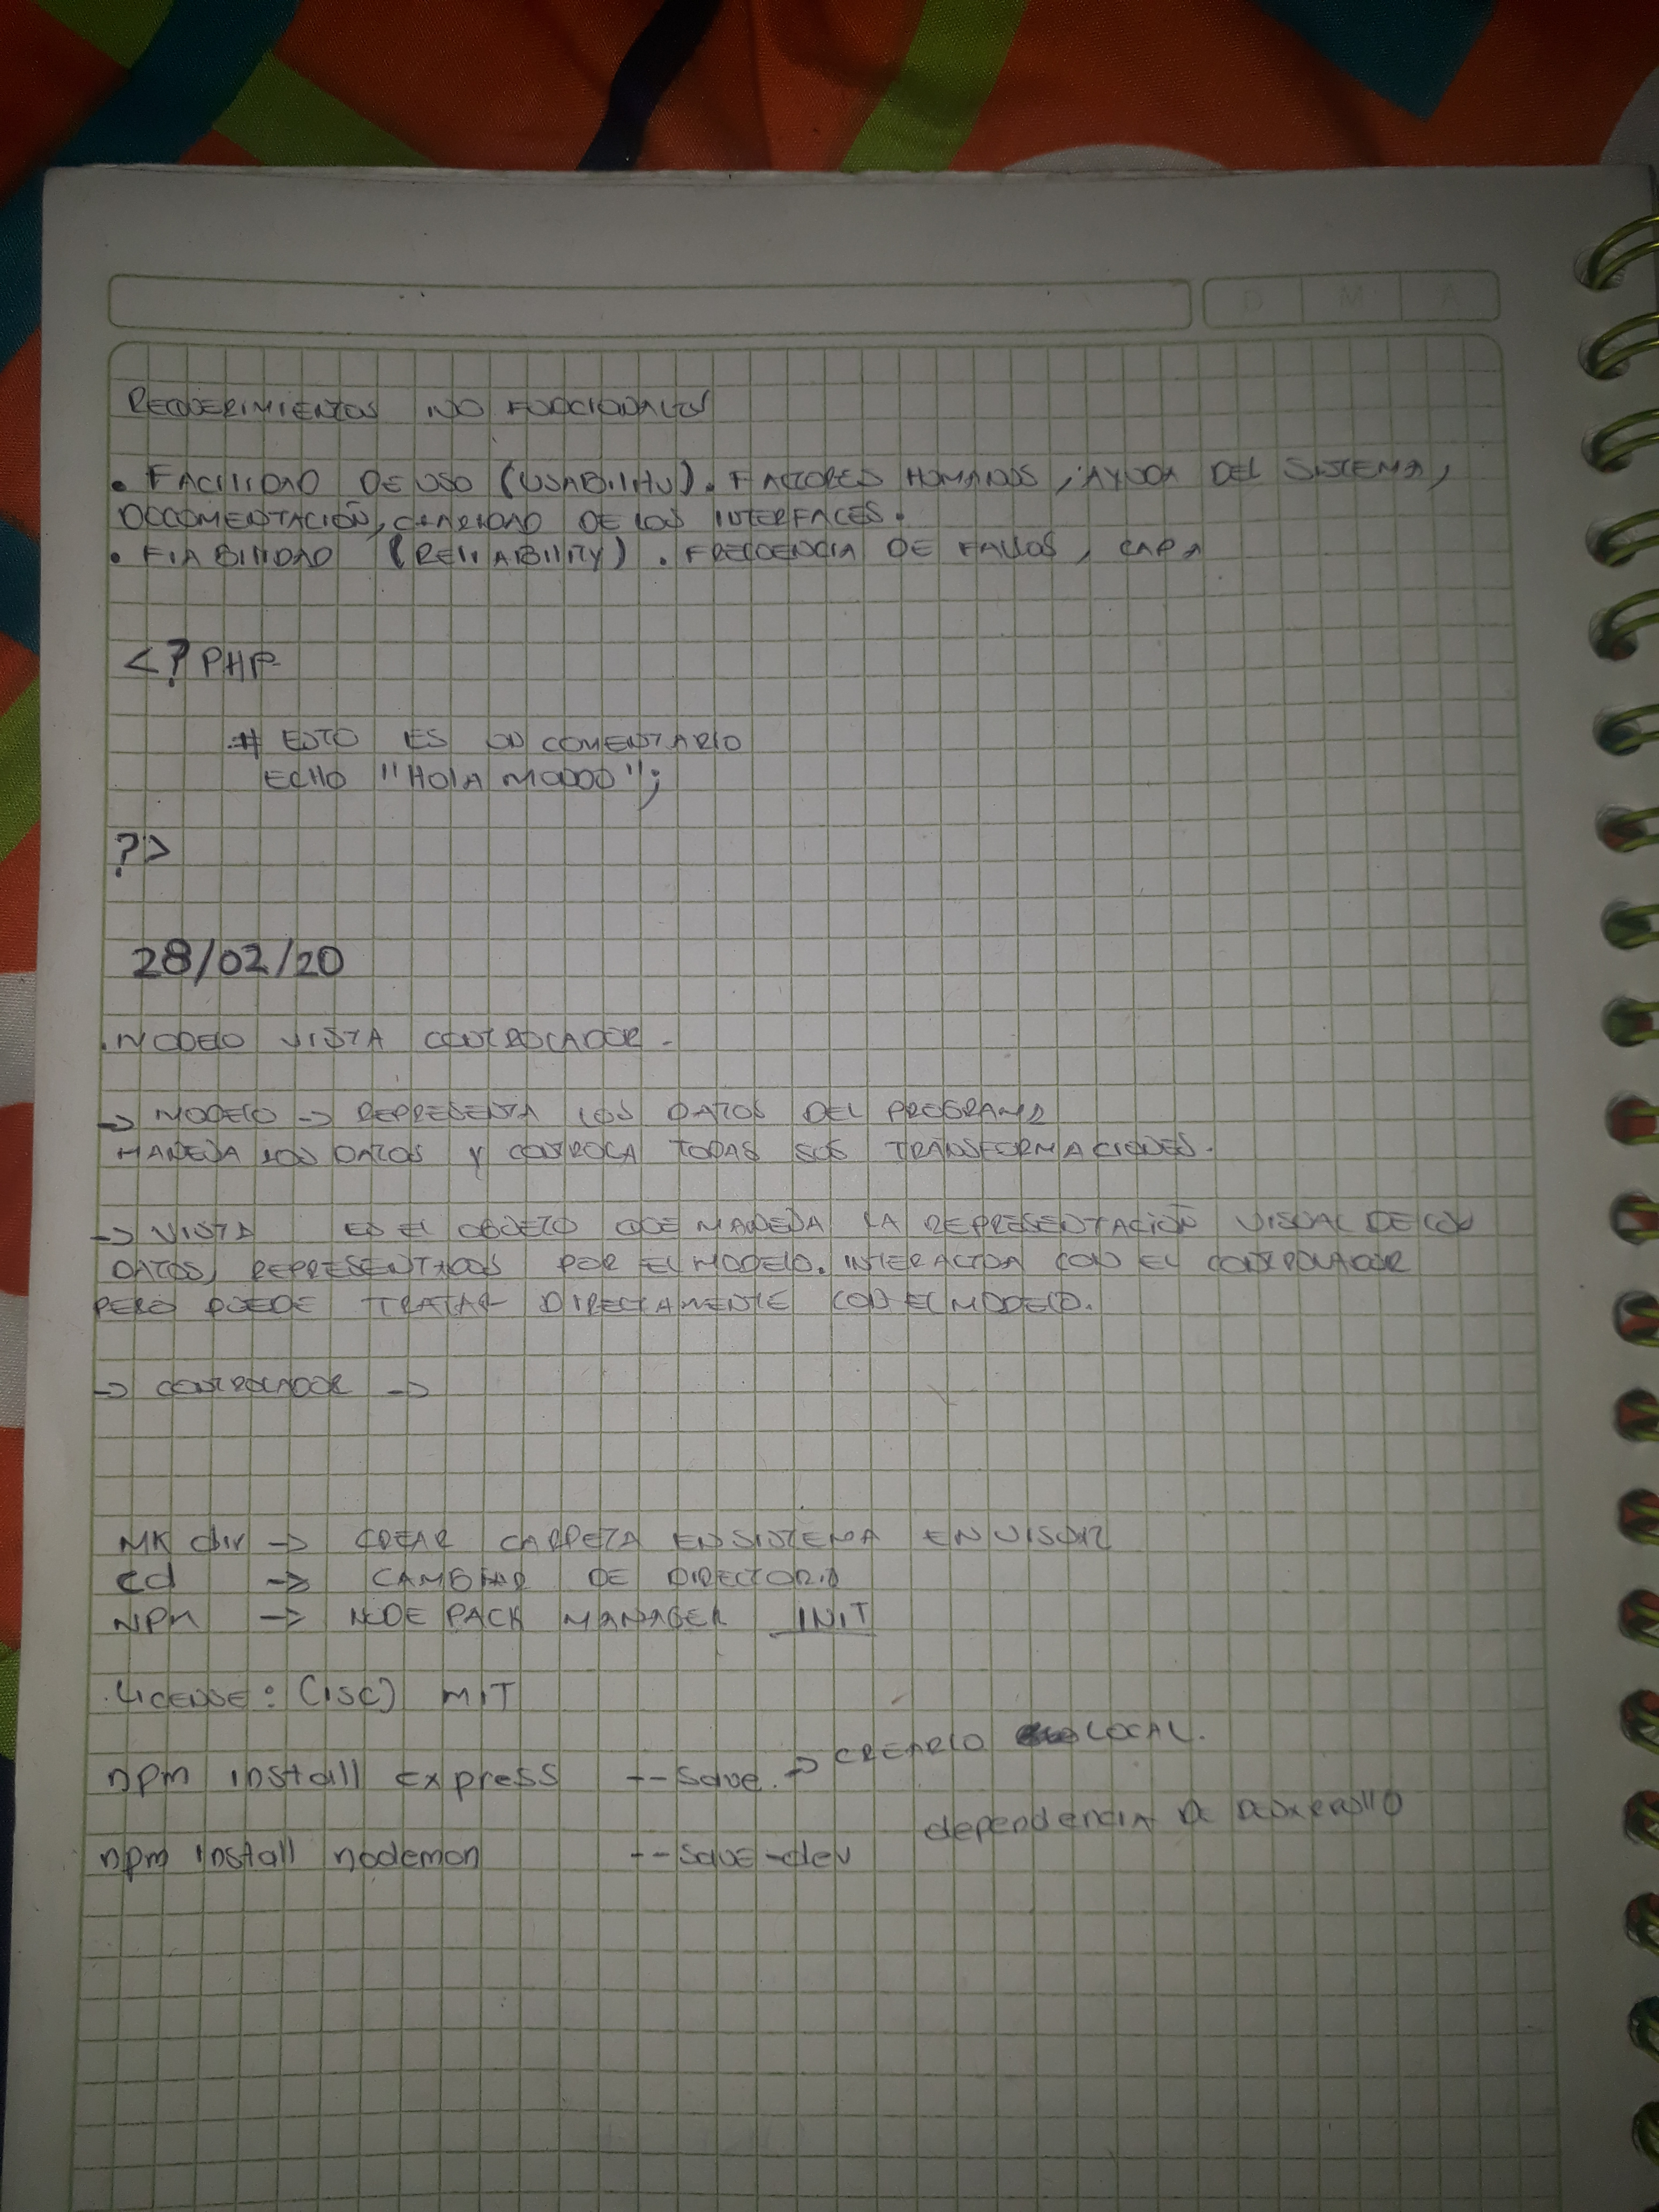 D M A
REQUERIMIENTOS NO FUNCIONALES
• FACILIDAD DE USO (USABILITY). FACTORES HUMANOS, AYUDA DEL SISTEMA,
DOCUMENTACIÓN, CLARIDAD DE LOS INTERFACES.
• FIABILIDAD (RELIABILITY). FRECUENCIA DE FALLOS, CAPA
<? PHP
# ESTO ES UN COMENTARIO
ECHO "HOLA MUNDO";
?>
28/02/20
.MODELO VISTA CONTROLADOR -
-> MODELO -> REPRESENTA LOS DATOS DEL PROGRAMA
MANEJA LOS DATOS Y CONTROLA TODAS SUS TRANSFORMACIONES.
-> VISTA ES EL OBJETO QUE MANEJA LA REPRESENTACIÓN VISUAL DE LOS
DATOS, REPRESENTADOS POR EL MODELO. INTERACTUA CON EL CONTROLADOR
PERO PUEDE TRATAR DIRECTAMENTE CON EL MODELO.
-> CONTROLADOR ->
MK dir -> CREAR CARPETA EN SISTEMA EN VISOR
cd -> CAMBIAR DE DIRECTORIO
NPM -> NODE PACK MANAGER INIT
.LICENSE: (ISC) MIT
npm install express --save. -> CREARLO LOCAL.
dependencia DE DESARROLLO
npm install nodemon --save-dev